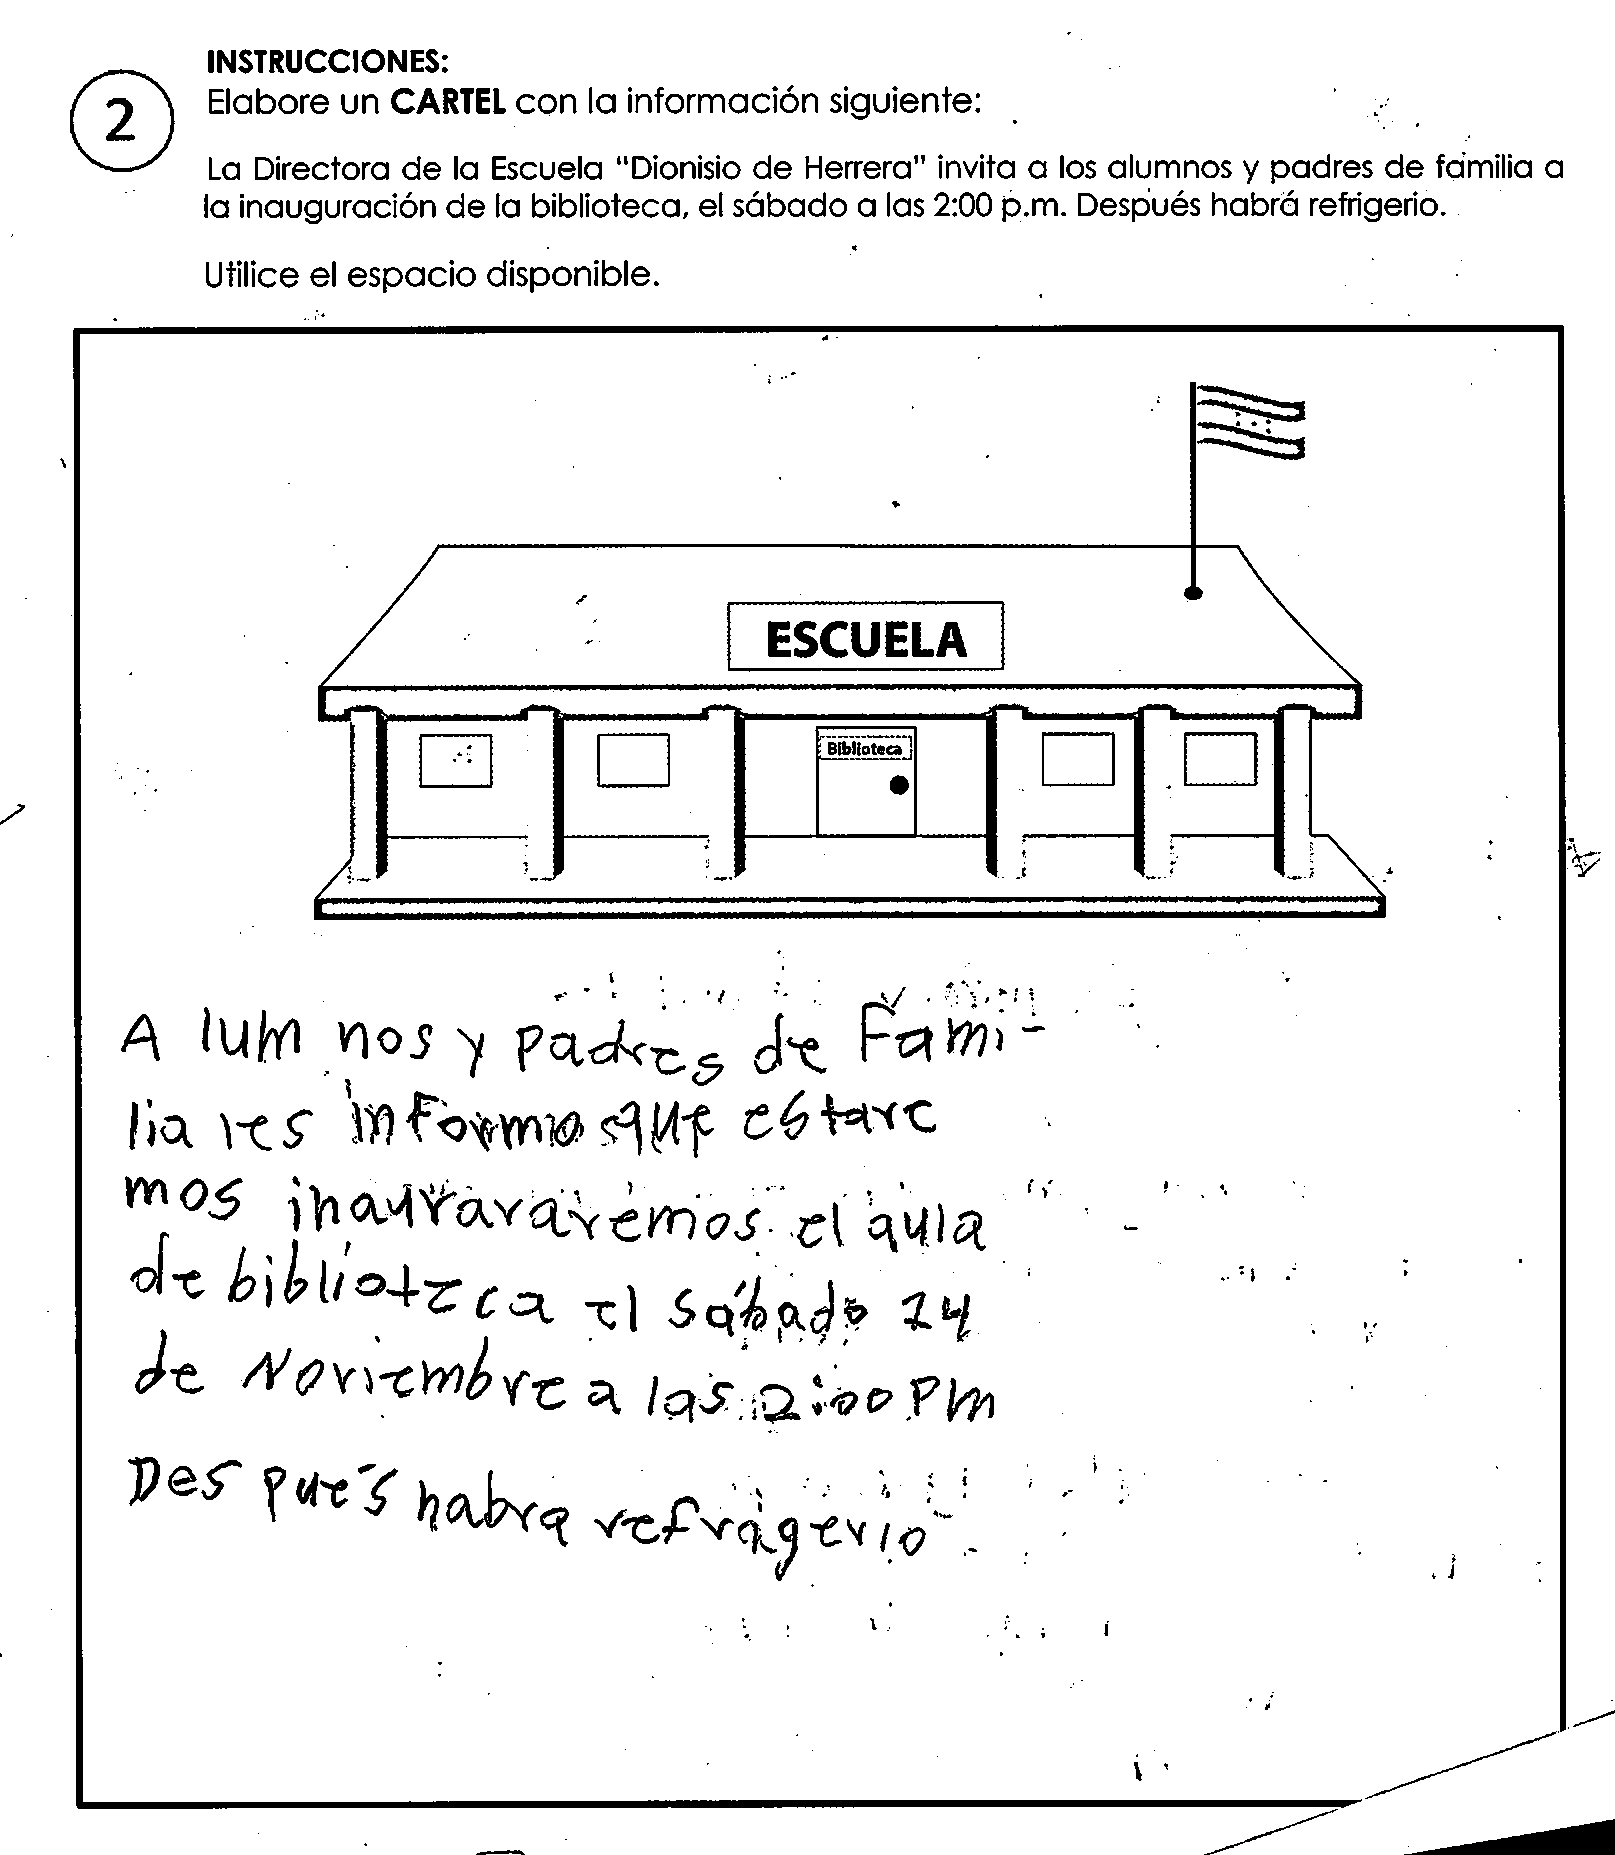 INSTRUCCIONES:
2
Elabore un CARTEL con la información siguiente:
La Directora de la Escuela "Dionisio de Herrera" invita a los alumnos y padres de familia a
la inauguración de la biblioteca, el sábado a las 2:00 p.m. Después habrá refrigerio.
Utilice el espacio disponible.
ESCUELA
Biblioteca
A lum nos y padres de Fami-
lia les informo que estare
mos inaurararemos el aula
de biblioteca el sábado 14
de Noviembre a las 2:00 Pm
Des pués habra refragerio